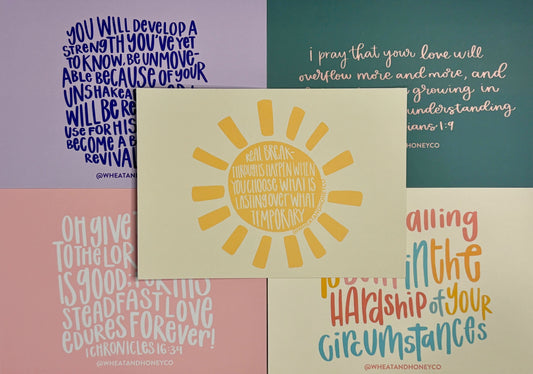 YOU WILL DEVELOP A
STRENGTH YOU'VE YET
TO KNOW, BE UNMOVE-
ABLE BECAUSE OF YOUR
UNSHAKEA
WILL BE RE
USE FOR HIS
BECOME A B
REVIVAL
@WHEATANDHONEYCO
i pray that your love will
overflow more and more, and
growing in
understanding
ians 1:9
ANDHONEYCO
REAL BREAK-
THROUGHS HAPPEN WHEN
YOU CHOOSE WHAT IS
LASTING OVER WHAT
TEMPORARY
@WHEATANDHONEYCO
OH GIVE
TO THE LOR
IS GOOD, FOR HIS
STEADFAST LOVE
EDURES FOREVER!
1 CHRONICLES 16:34
@WHEATANDHONEYCO
alling
in the
HARDSHIP of YOUR
CIRCUMSTANCES
@WHEATANDHONEYCO